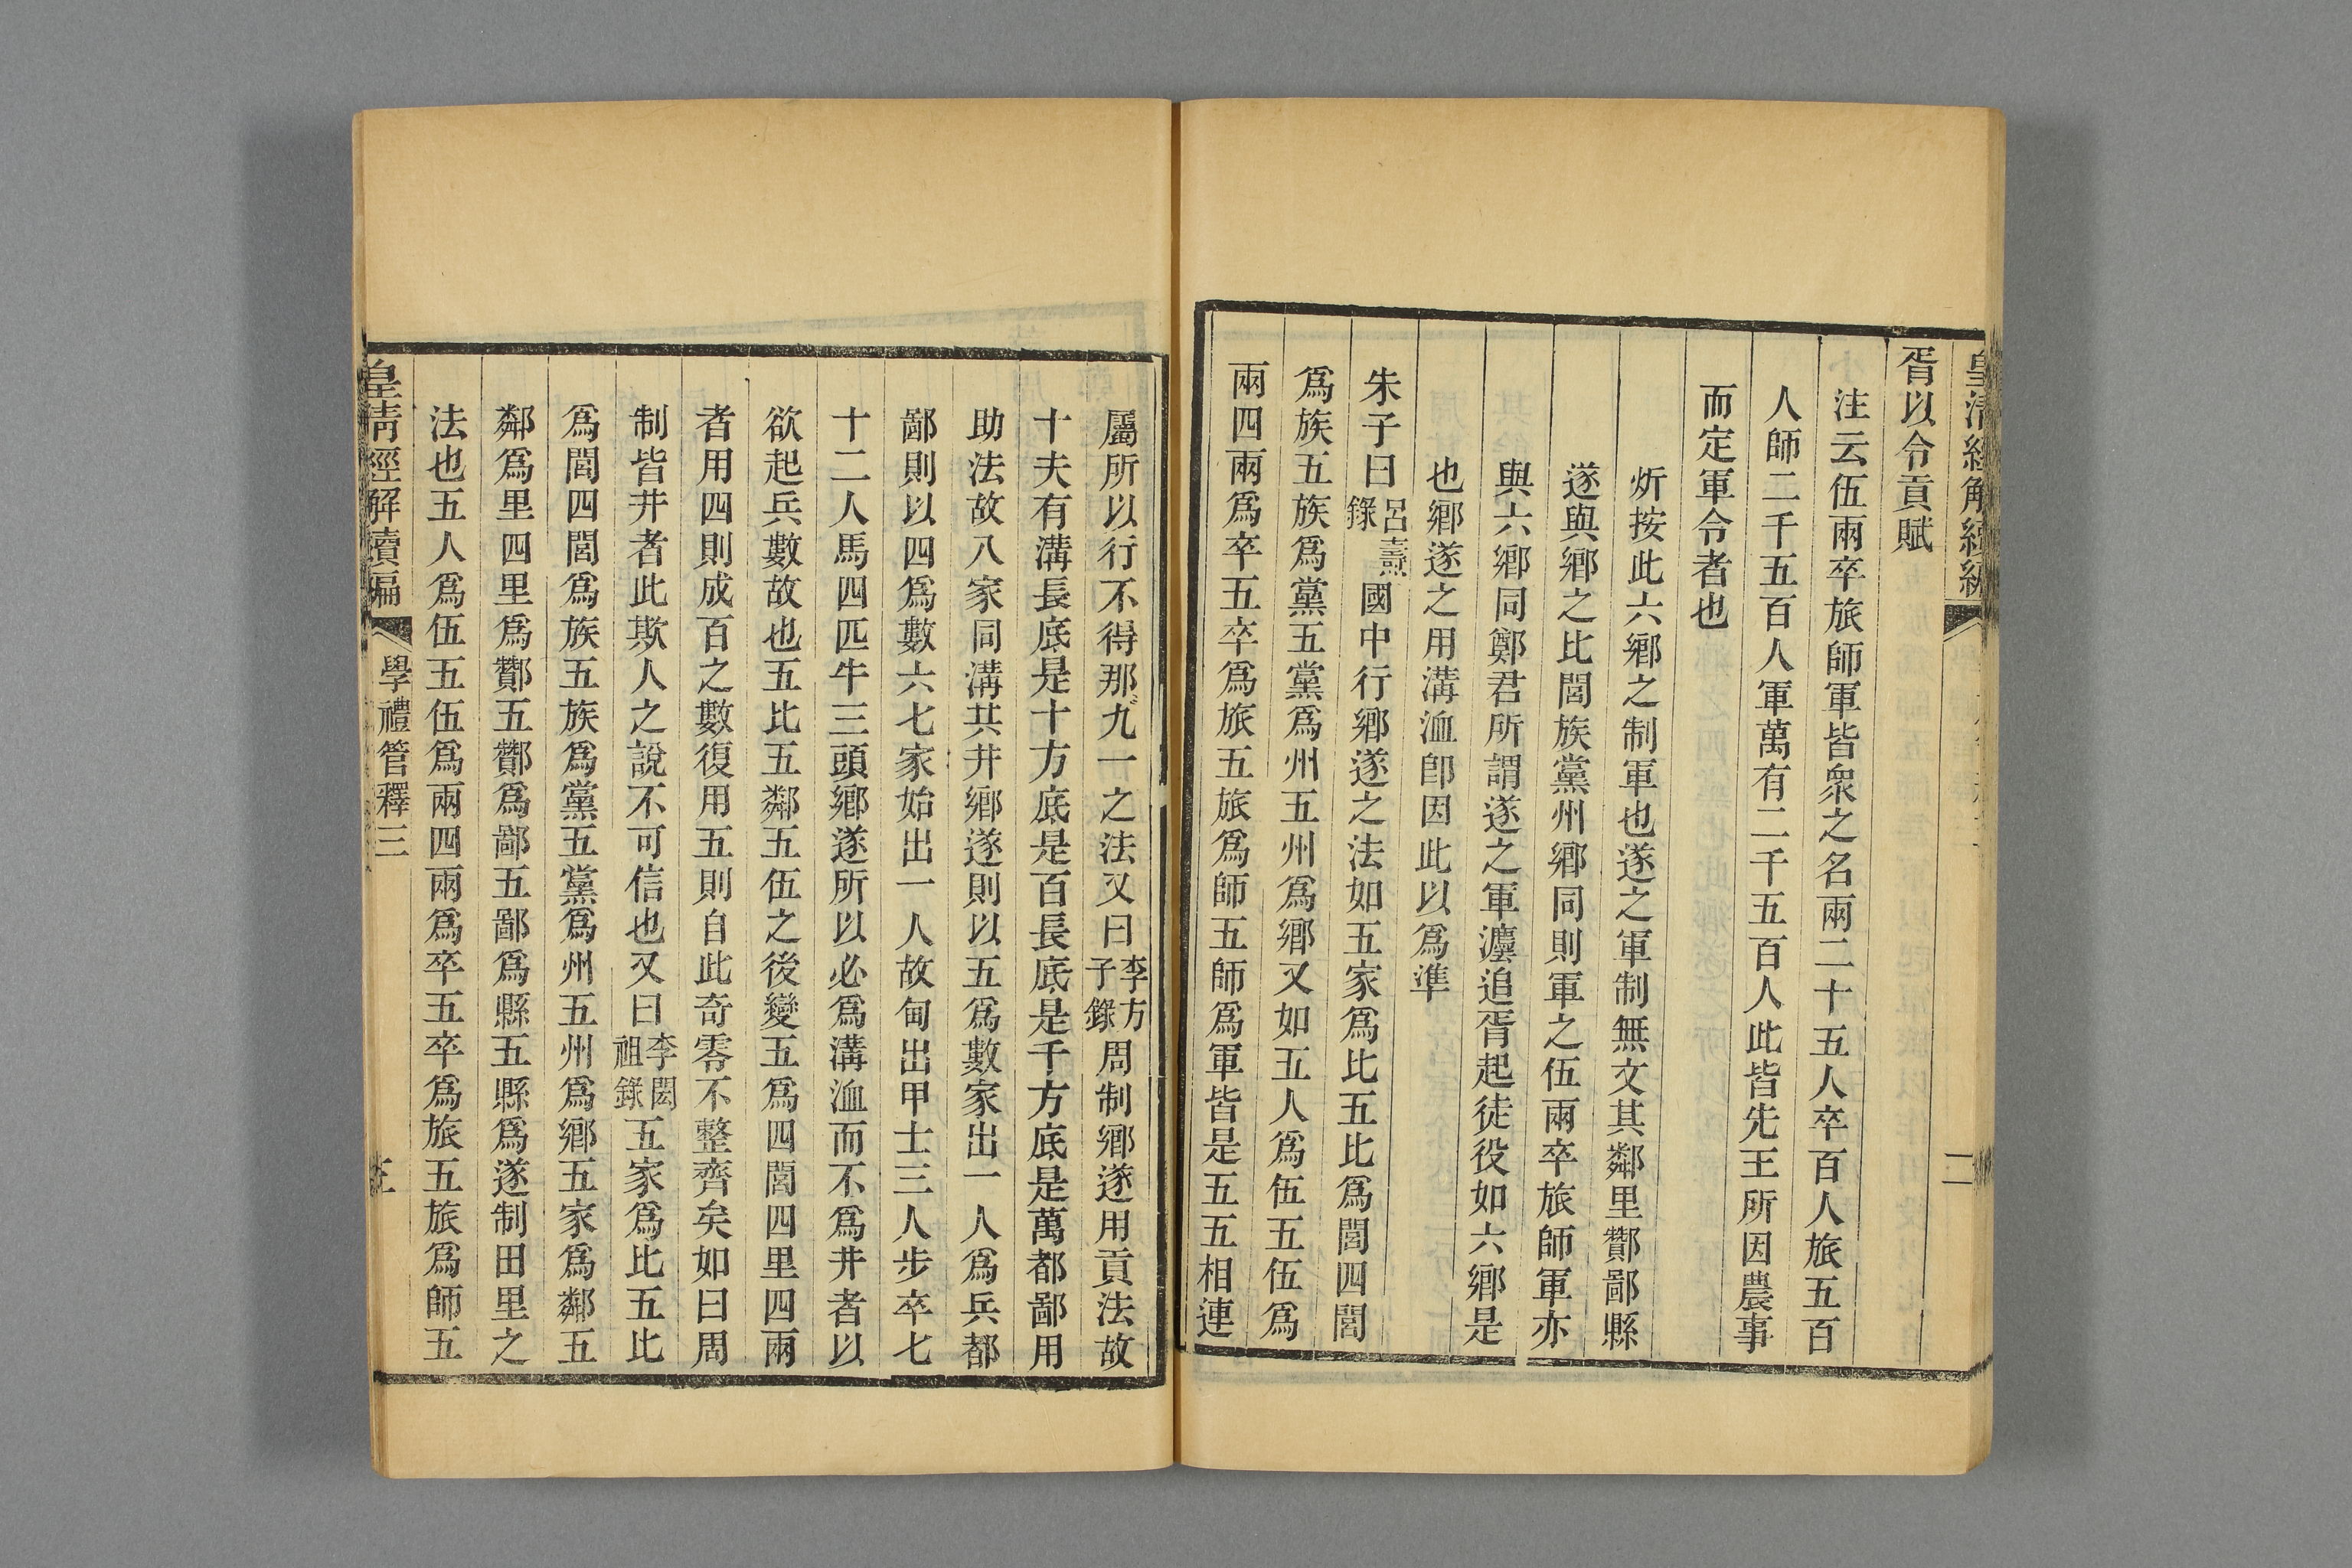 皇清經解續編
二
胥以令貢賦
注云伍兩卒旅師軍皆衆之名兩二十五人卒百人旅五百
人師二千五百人軍萬有二千五百人此皆先王所因農事
而定軍令者也
炘按此六鄉之制軍也遂之軍制無文其鄰里酇鄙縣
遂與鄉之比閭族黨州鄉同則軍之伍兩卒旅師軍亦
與六鄉同鄭君所謂遂之軍灋追胥起徒役如六鄉是
也鄉遂之用溝洫卽因此以爲準
朱子曰呂燾錄國中行鄉遂之法如五家爲比五比爲閭四閭
爲族五族爲黨五黨爲州五州爲鄉又如五人爲伍五伍爲
兩四兩爲卒五卒爲旅五旅爲師五師爲軍皆是五五相連
屬所以行不得那九一之法又曰李方子錄周制鄉遂用貢法故
十夫有溝長底是十方底是百長底是千方底是萬都鄙用
助法故八家同溝共井鄉遂則以五爲數家出一人爲兵都
鄙則以四爲數六七家始出一人故甸出甲士三人步卒七
十二人馬四匹牛三頭鄉遂所以必爲溝洫而不爲井者以
欲起兵數故也五比五鄰五伍之後變五爲四閭四里四兩
者用四則成百之數復用五則自此奇零不整齊矣如曰周
制皆井者此欺人之說不可信也又曰李閎祖錄五家爲比五比
爲閭四閭爲族五族爲黨五黨爲州五州爲鄉五家爲鄰五
鄰爲里四里爲酇五酇爲鄙五鄙爲縣五縣爲遂制田里之
法也五人爲伍五伍爲兩四兩爲卒五卒爲旅五旅爲師五
皇清經解續編
學禮管釋三